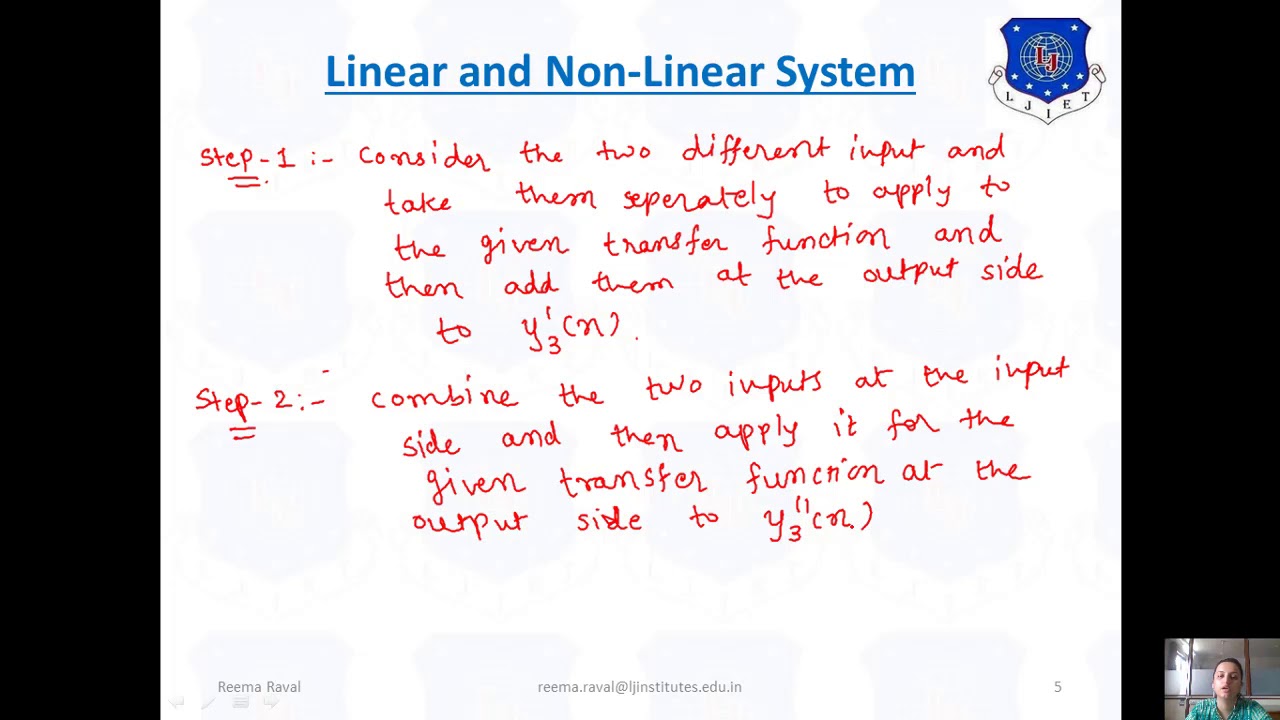 Linear and Non-Linear System
LJIET
Step-1 :- Consider the two different input and
take them seperately to apply to
the given transfer function and
then add them at the output side
to y₃'(n).
Step-2:- Combine the two inputs at the input
side and then apply it for the
given transfer function at the
output side to y₃''(n)
Reema Raval
reema.raval@ljinstitutes.edu.in
5